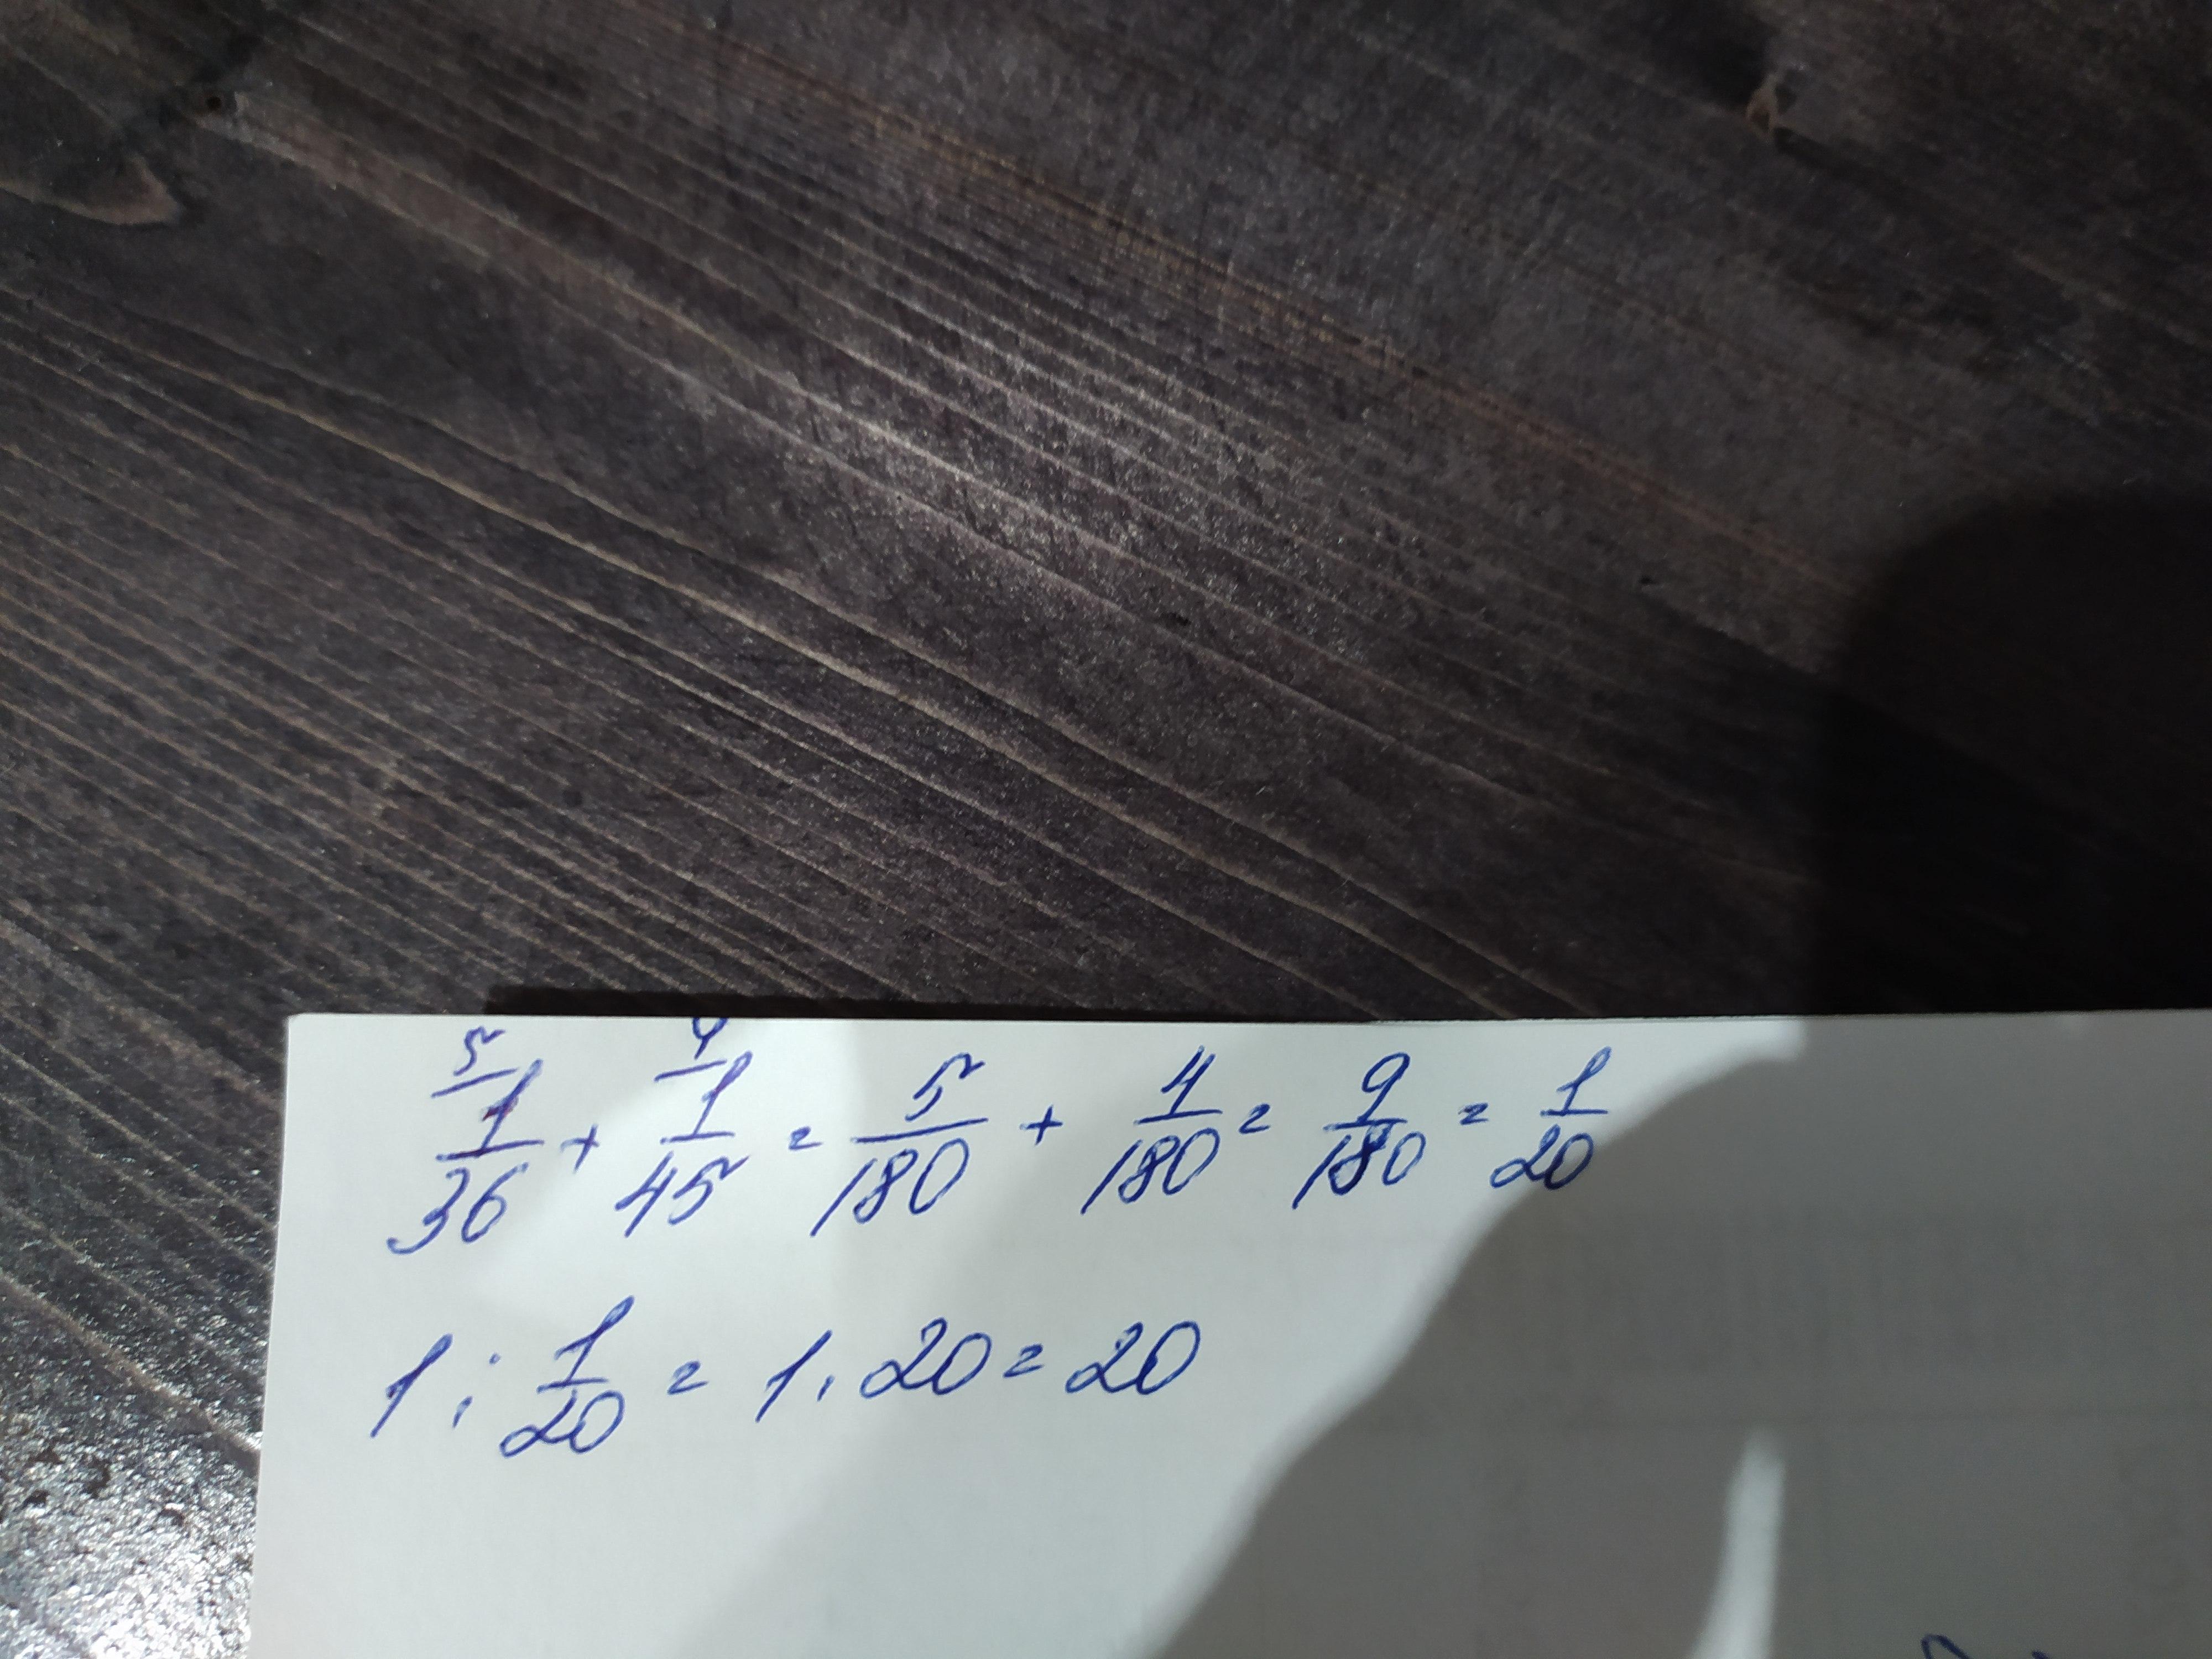 5/ 1/36 + 4/ 1/45 = 5/180 + 4/180 = 9/180 = 1/20
1 : 1/20 = 1 . 20 = 20